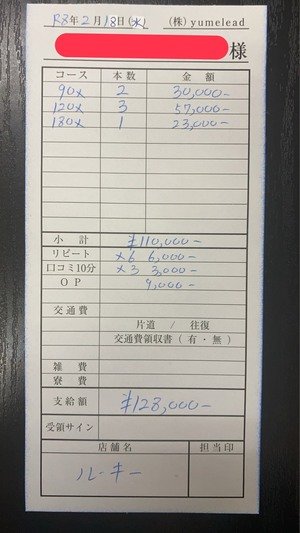 R8年2月18日(水) (株)yumelead
様
コース 本数 金額
90分 2 30,000-
120分 3 57,000-
180分 1 23,000-
小計 ¥110,000-
リピート ×6 6,000-
口コミ10分 ×3 3,000-
OP 9,000-
交通費
片道 / 往復
交通費領収書(有・無)
雑費
寮費
支給額 ¥128,000-
受領サイン
店舗名 担当印
ルーキー